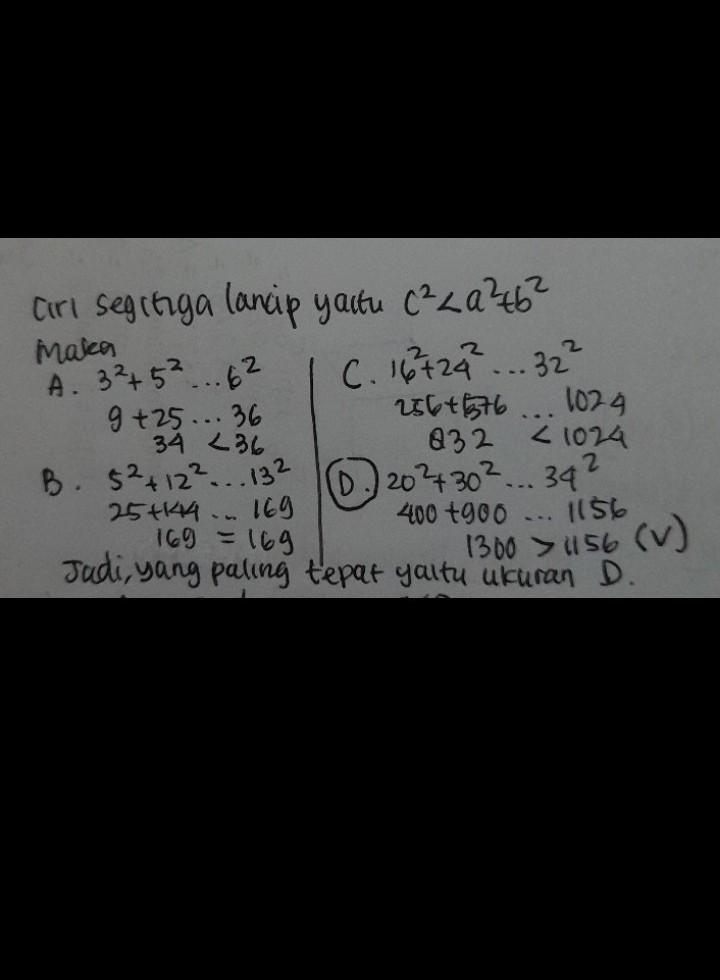 Ciri segitiga lancip yaitu c²<a²+b²
Maka
A. 3²+5²...6²
9+25...36
34 <36
B. 5²+12²...13²
25+144...169
169 = 169
C. 16²+24²...32²
256+576...1024
832 <1024
D. 20²+30²...34²
400+900...1156
1300 >1156 (V)
Jadi, yang paling tepat yaitu ukuran D.